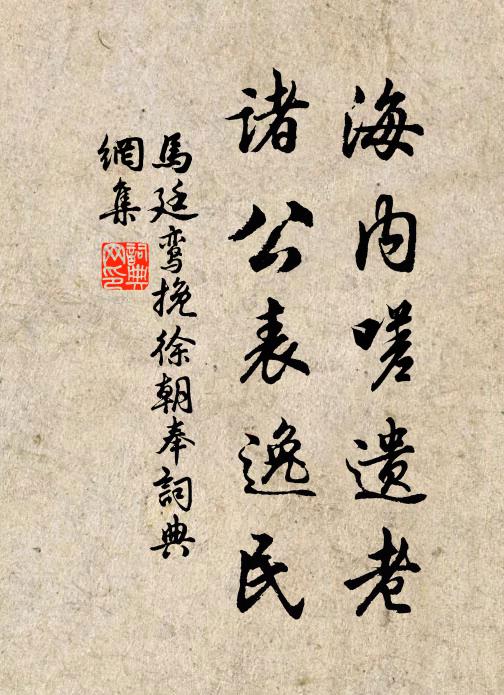 海内嗟遺老
諸公表逸民
馬廷鸞挽徐朝奉詞典
網集
詞典
网印